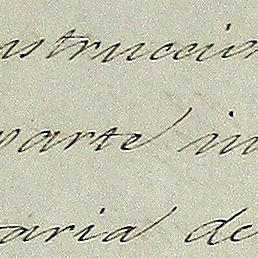 nstruccion
parte in
taria de